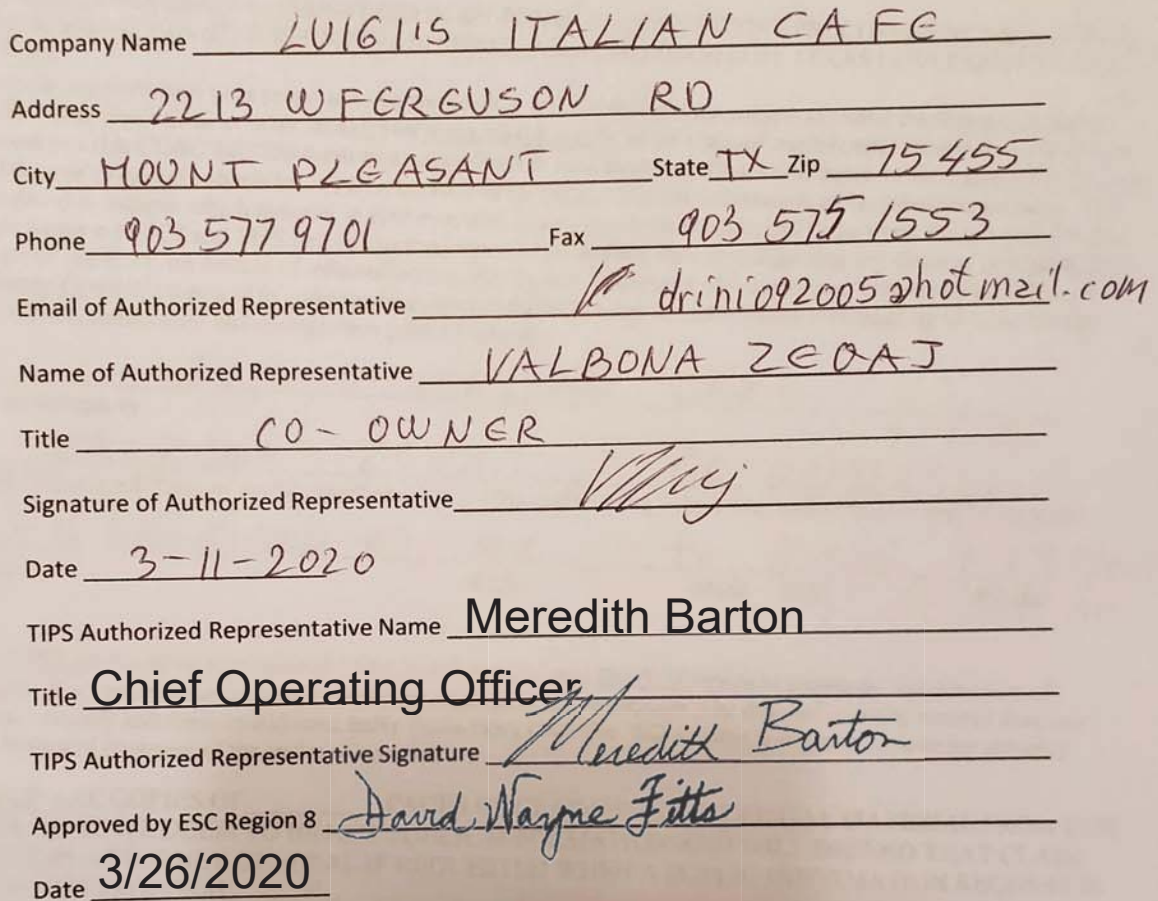 Company Name LUIGIIS ITALIAN CAFE
Address 2213 W FERGUSON RD
City MOUNT PLEASANT State TX Zip 75455
Phone 903 577 9701 Fax 903 575 1553
Email of Authorized Representative drini092005@hotmail.com
Name of Authorized Representative VALBONA ZEQAJ
Title CO-OWNER
Signature of Authorized Representative
Date 3-11-2020
TIPS Authorized Representative Name Meredith Barton
Title Chief Operating Officer
TIPS Authorized Representative Signature Meredith Barton
Approved by ESC Region 8 David Wayne Fitts
Date 3/26/2020